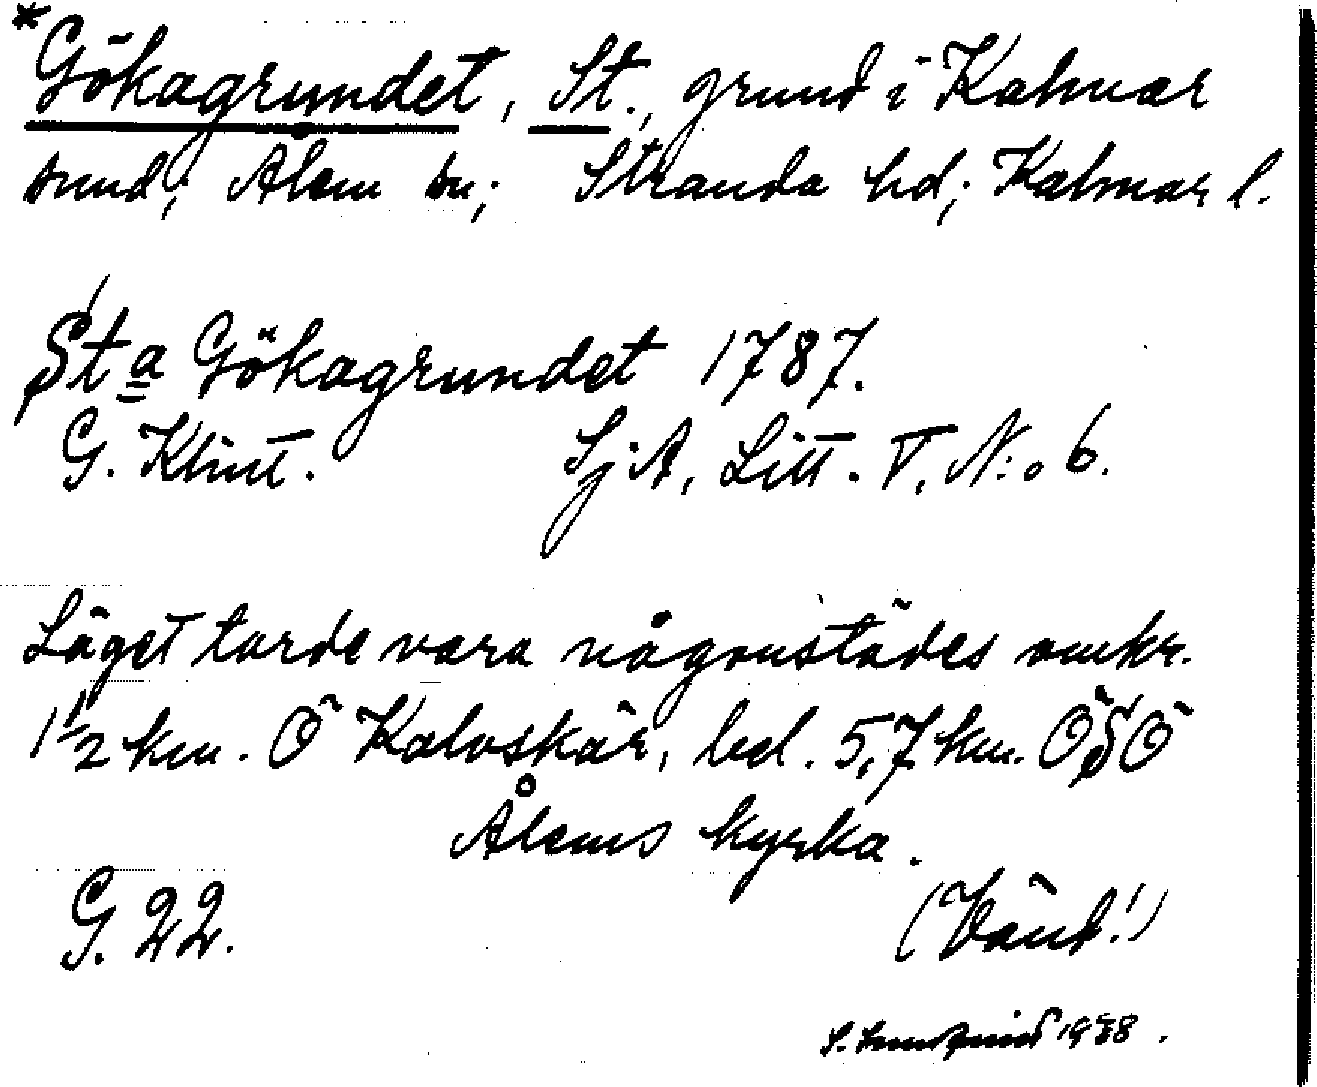 *Gökagrundet, St., grund i Kalmar
sund; Ålem sn; Stranda hd; Kalmar l.
Sta Gökagrundet 1787.
G. Klint. SjA, Litt. V, N:o 6.
Läget torde vara någonstädes omkr.
1 1/2 km. Ö Kalvskär, bel. 5,7 km. ÖSÖ
Ålems kyrka.
G. 22. (Vänd!)